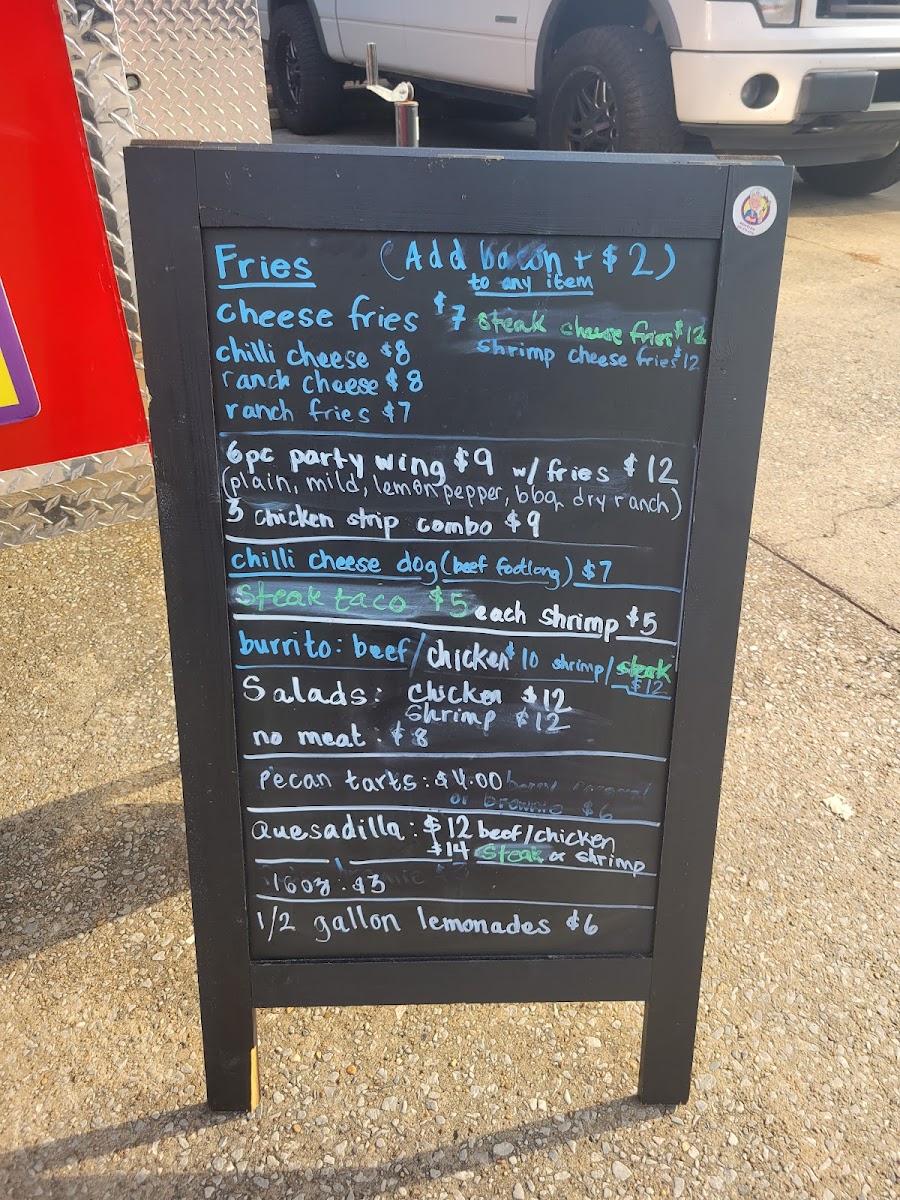 Fries (Add bacon + $2)
to any item
cheese fries $7 steak cheese fries $12
chilli cheese $8 shrimp cheese fries $12
ranch cheese $8
ranch fries $7
6pc party wing $9 w/ fries $12
(plain, mild, lemon pepper, bbq, dry ranch)
3 chicken strip combo $9
chilli cheese dog (beef footlong) $7
steak taco $5 each shrimp $5
burrito: beef/chicken $10 shrimp/steak
$12
Salads: chicken $12
Shrimp $12
no meat: $8
Pecan tarts: $4.00
or brownie $6
Quesadilla: $12 beef/chicken
$14 steak or shrimp
16oz: $3
1/2 gallon lemonades $6